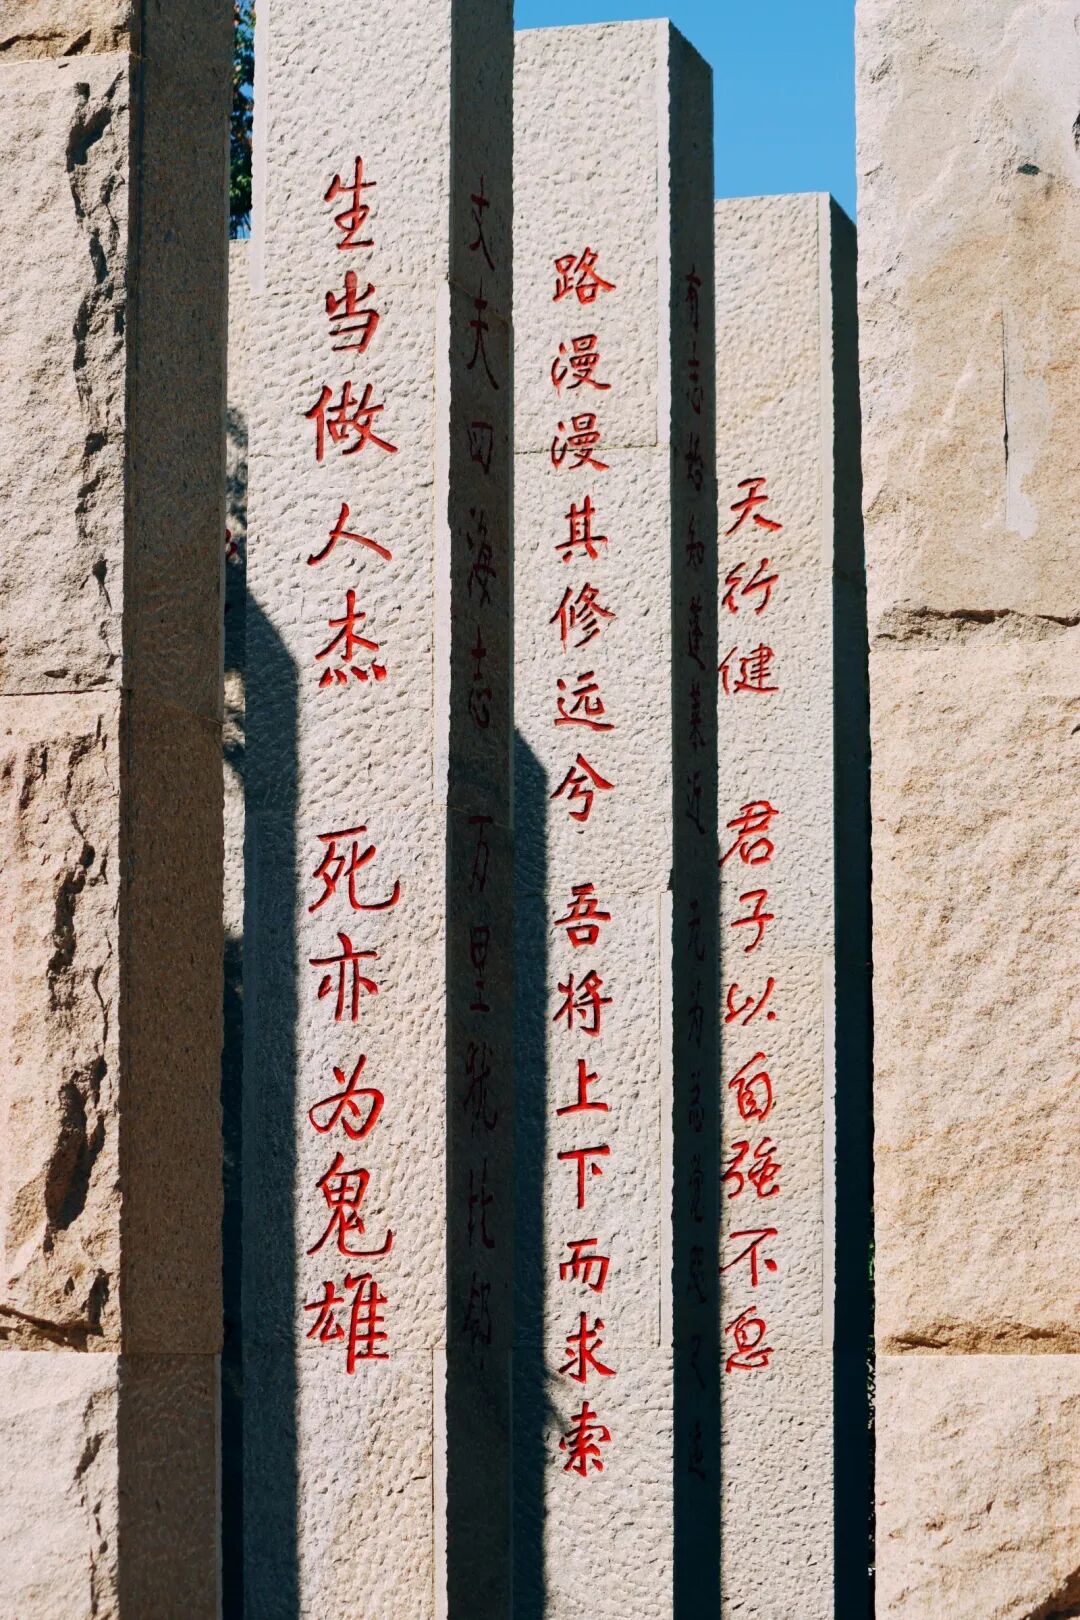 生当做人杰 死亦为鬼雄
丈夫四海志 万里犹比邻
路漫漫其修远兮 吾将上下而求索
天行健 君子以自强不息